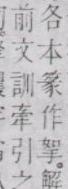 各本篆作挐。解
前文訓牽引之